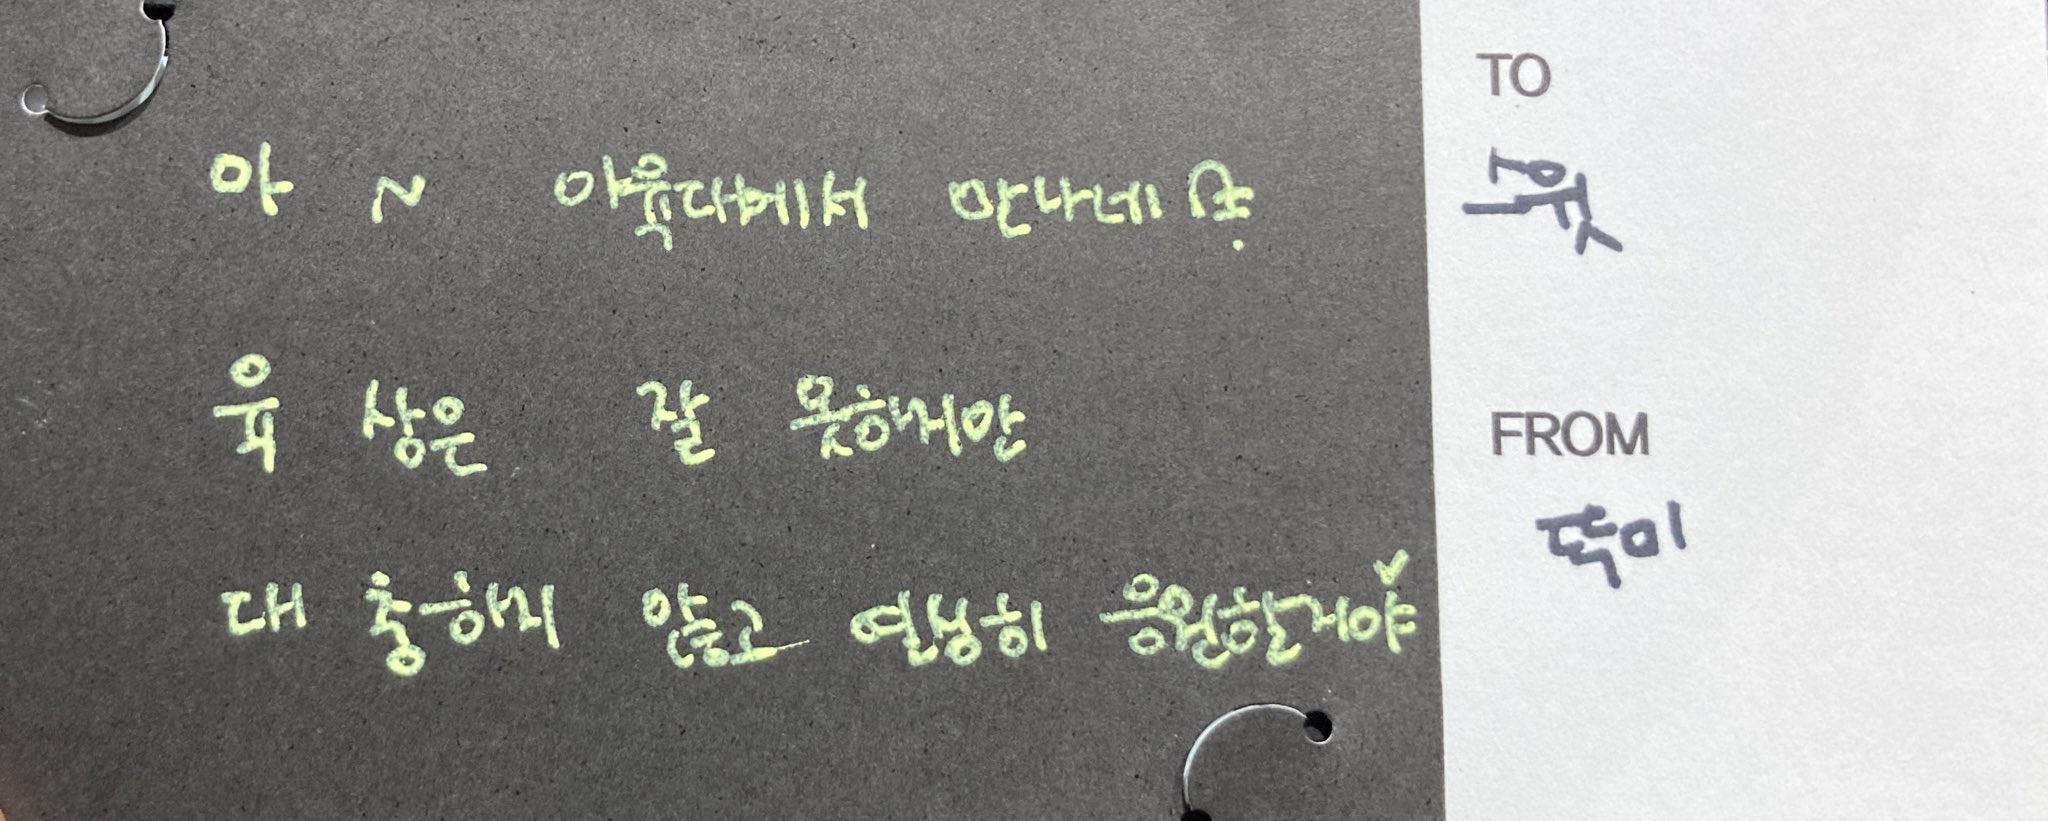 아 ~ 아육대에서 만나네
육 상은 잘 못하지만
대 충하지 않고 열심히 응원할거야
TO
FROM